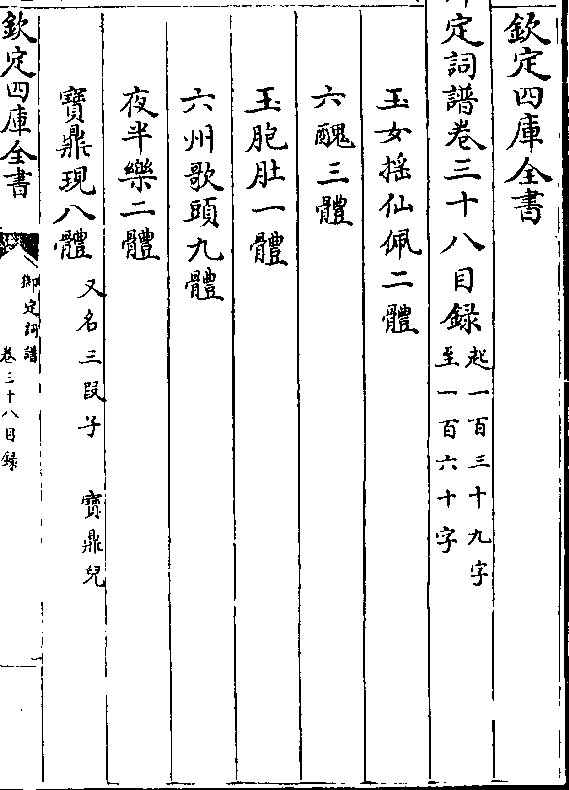 欽定四庫全書
御定詞譜卷三十八目録 起一百三十九字 至一百六十字
玉女揺仙佩二體
六醜三體
玉胞肚一體
六州歌頭九體
夜半樂二體
寳鼎現八體 又名三段子 寳鼎兒
欽定四庫全書 御定詞譜 卷三十八目録